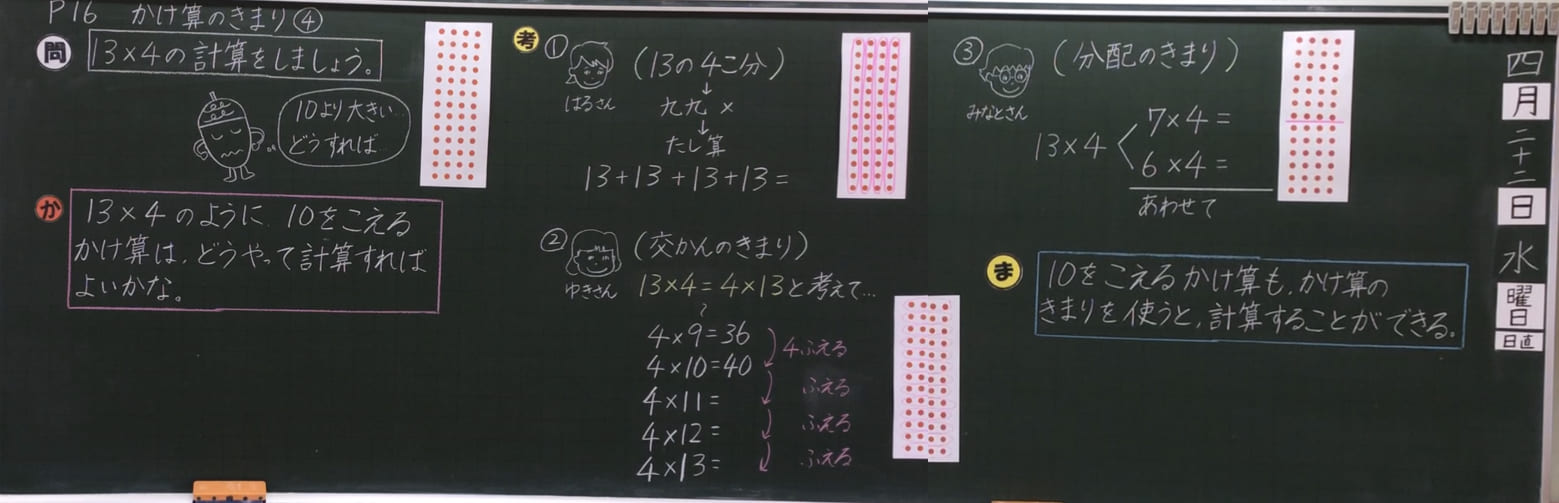 P16 かけ算のきまり④
問
13×4の計算をしましょう。
10より大きい…
どうすれば…
か
13×4のように、10をこえる
かけ算は、どうやって計算すれば
よいかな。
考
①
はるさん
(13の4こ分)
↓
九九 ×
↓
たし算
13+13+13+13=
②
ゆきさん
(交かんのきまり)
13×4=4×13と考えて…
?
4×9=36
4ふえる
4×10=40
ふえる
4×11=
ふえる
4×12=
ふえる
4×13=
③
みなとさん
(分配のきまり)
13×4
7×4=
6×4=
あわせて
ま
10をこえるかけ算も、かけ算の
きまりを使うと、計算することができる。
四
月
二十二
日
水
曜日
日直